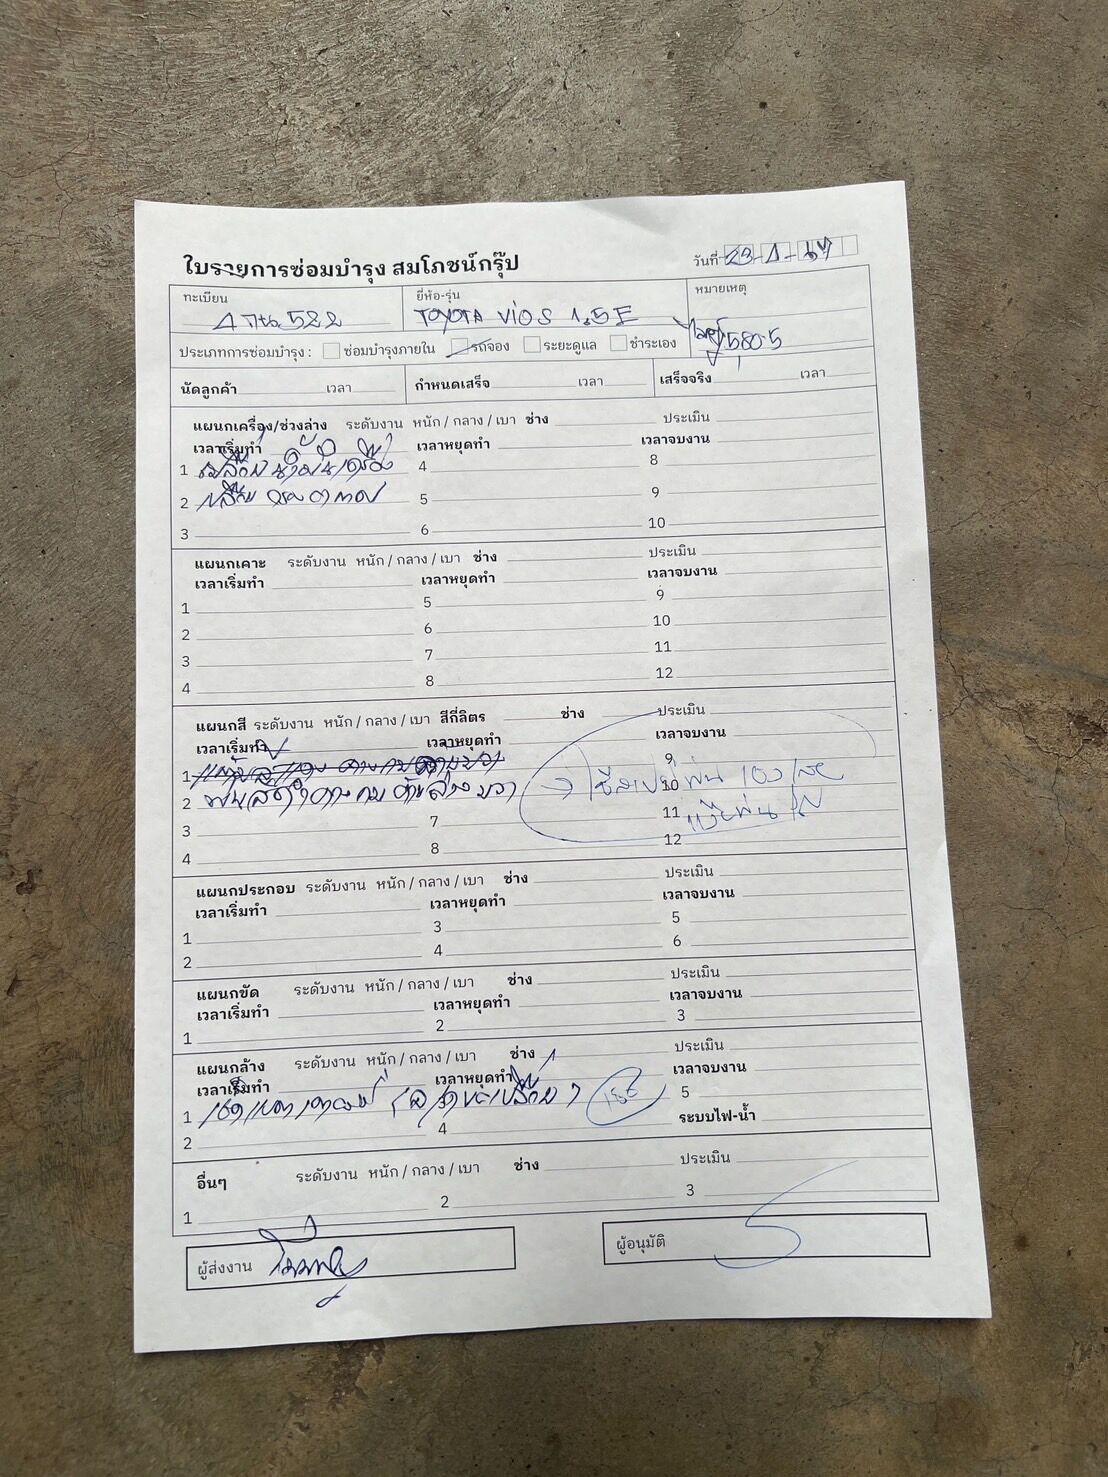 ใบรายการซ่อมบำรุง สมโภชน์กรุ๊ป
วันที่ 23-1-67
ทะเบียน
ยี่ห้อ-รุ่น
หมายเหตุ
4 กน 522
TOYOTA VIOS 1.5 E
ไมล์ 5,805
ประเภทการซ่อมบำรุง : ซ่อมบำรุงภายใน รถจอง ระยะดูแล ชำระเอง
นัดลูกค้า เวลา กำหนดเสร็จ เวลา เสร็จจริง เวลา
แผนกเครื่อง/ช่วงล่าง ระดับงาน หนัก / กลาง / เบา ช่าง ประเมิน
เวลาเริ่มทำ เวลาหยุดทำ เวลาจบงาน
1 เปลี่ยนน้ำมันเครื่อง 4 8
2 เปลี่ยน 5 9
3 6 10
แผนกเคาะ ระดับงาน หนัก / กลาง / เบา ช่าง ประเมิน
เวลาเริ่มทำ เวลาหยุดทำ เวลาจบงาน
1 5 9
2 6 10
3 7 11
4 8 12
แผนกสี ระดับงาน หนัก / กลาง / เบา สีกี่ลิตร ช่าง ประเมิน
เวลาเริ่มทำ เวลาหยุดทำ เวลาจบงาน
1 9
2 พ่นสีดำคางกบด้านล่างขวา 10 พ่นเอง
3 7 11
4 8 12
แผนกประกอบ ระดับงาน หนัก / กลาง / เบา ช่าง ประเมิน
เวลาเริ่มทำ เวลาหยุดทำ เวลาจบงาน
1 3 5
2 4 6
แผนกขัด ระดับงาน หนัก / กลาง / เบา ช่าง ประเมิน
เวลาเริ่มทำ เวลาหยุดทำ เวลาจบงาน
1 2 3
แผนกล้าง ระดับงาน หนัก / กลาง / เบา ช่าง ประเมิน
เวลาเริ่มทำ เวลาหยุดทำ เวลาจบงาน
1 เช็คแบตเตอรี่ 5
2 4 ระบบไฟ-น้ำ
อื่นๆ ระดับงาน หนัก / กลาง / เบา ช่าง ประเมิน
1 2 3
ผู้ส่งงาน
ผู้อนุมัติ